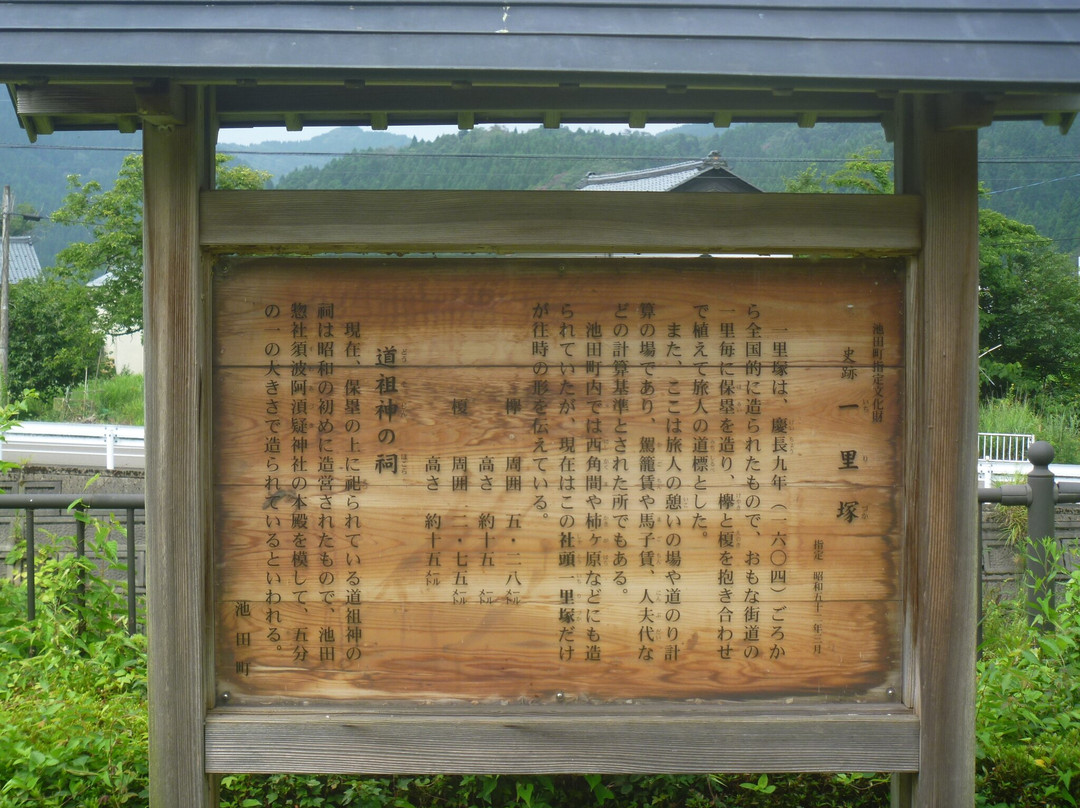 池田町指定文化財
史跡 一里塚
指定 昭和五十 年三月
一里塚は、慶長九年(一六〇四)ごろか
ら全国的に造られたもので、おもな街道の
一里毎に保塁を造り、欅と榎を抱き合わせ
で植えて旅人の道標とした。
また、ここは旅人の憩いの場や道のり計
算の場であり、駕籠賃や馬子賃、人夫代な
どの計算基準とされた所でもある。
池田町内では西角間や柿ヶ原などにも造
られていたが、現在はこの社頭一里塚だけ
が往時の形を伝えている。
欅 周囲 五・二八メートル
高さ 約十五メートル
榎 周囲 二・七五メートル
高さ 約十五メートル
道祖神の祠
現在、保塁の上に祀られている道祖神の
祠は昭和の初めに造営されたもので、池田
惣社須波阿湏疑神社の本殿を模して、五分
の一の大きさで造られているといわれる。
池田町